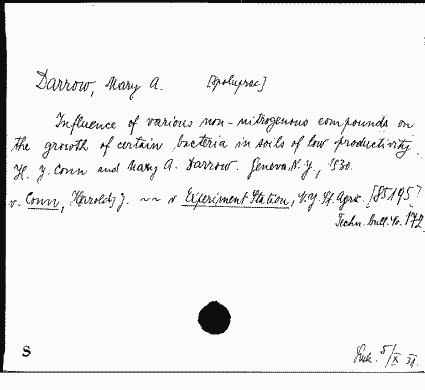 Darrow, Mary A. [spoluprac]
Influence of various non-nitrogenous compounds on
the growth of certain bacteria in soils of low productivity.
H. J. Conn and Mary A. Darrow. Geneva, N.Y., 1930.
v. Conn, Harold J. ~~ v Experiment Station, N.Y. St. Agric. [85195]
Techn. bull. No. 172
S 5/X 31.